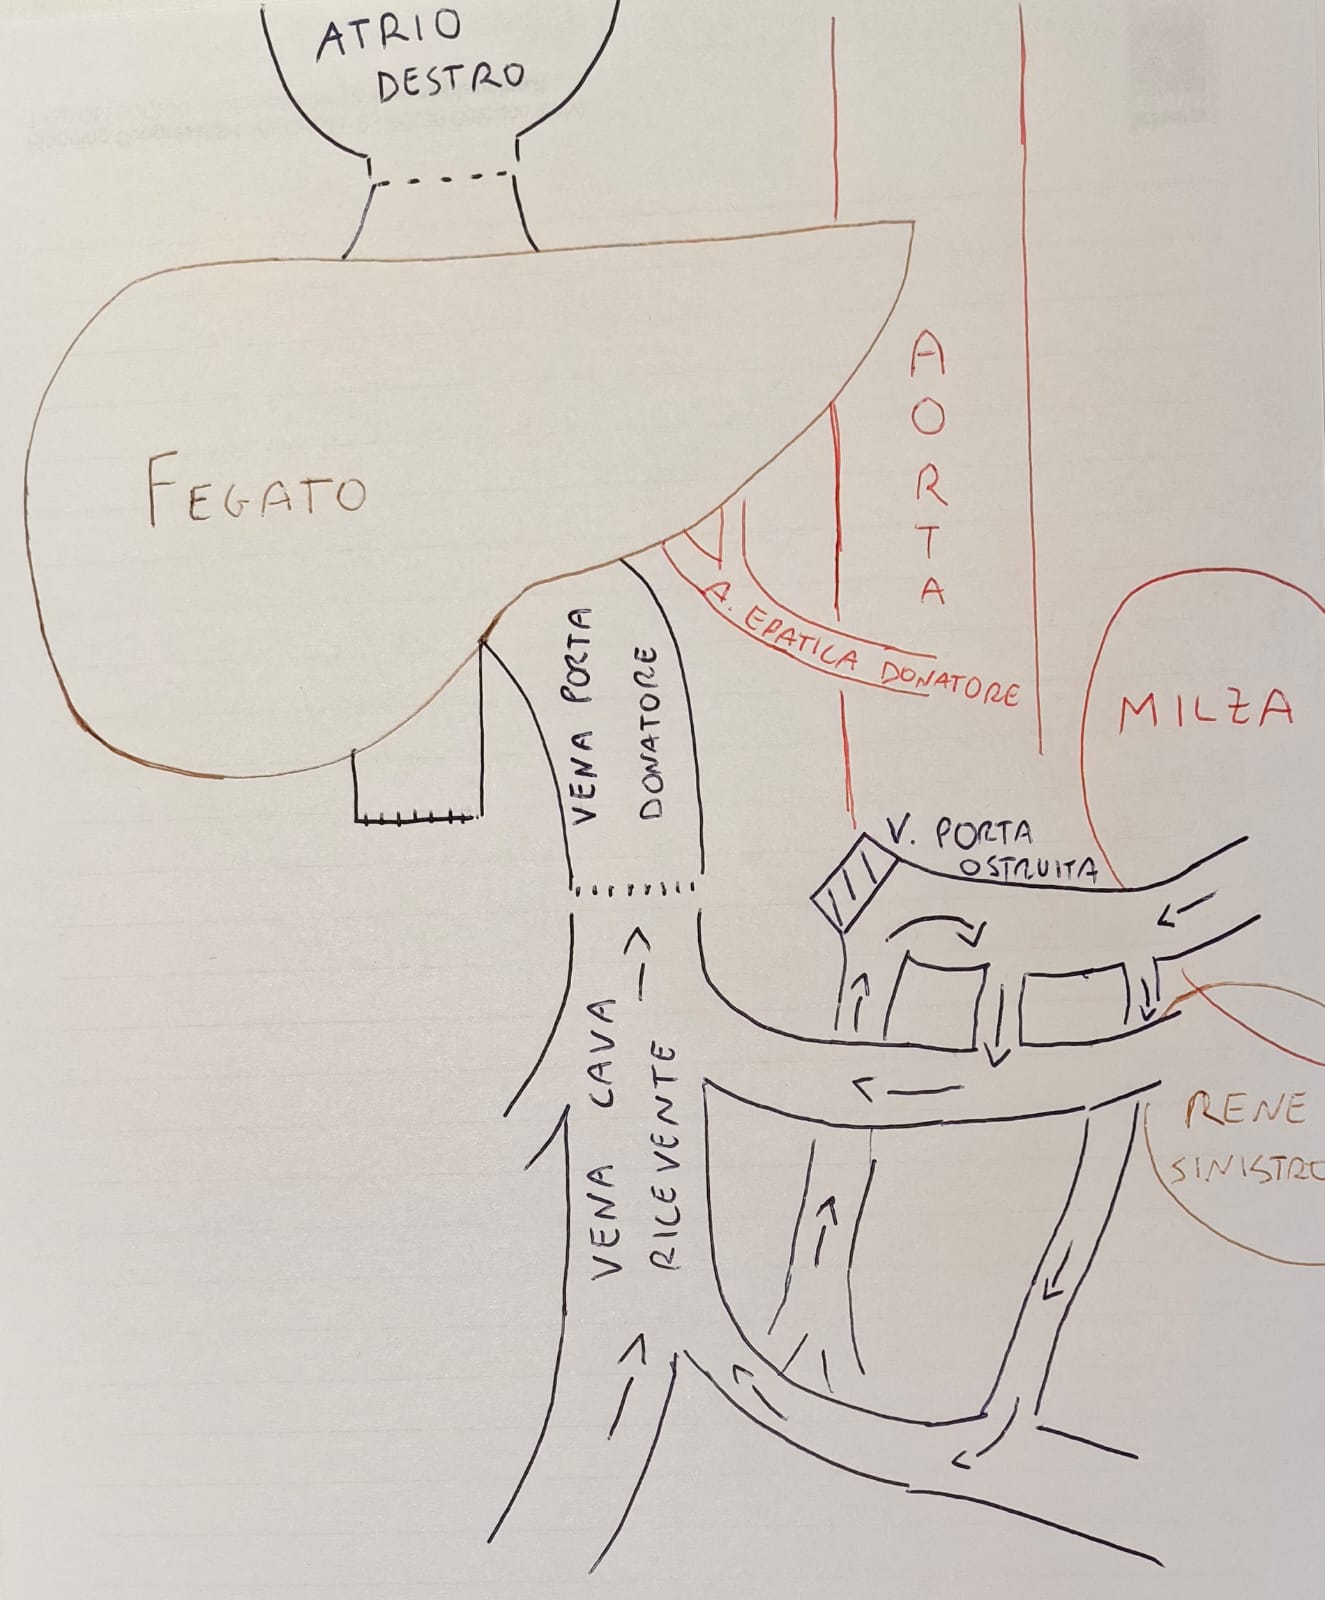 ATRIO
DESTRO
AORTA
FEGATO
A. EPATICA DONATORE
VENA PORTA
DONATORE
MILZA
V. PORTA
OSTRUITA
VENA CAVA
RILEVENTE
RENE
SINISTRO